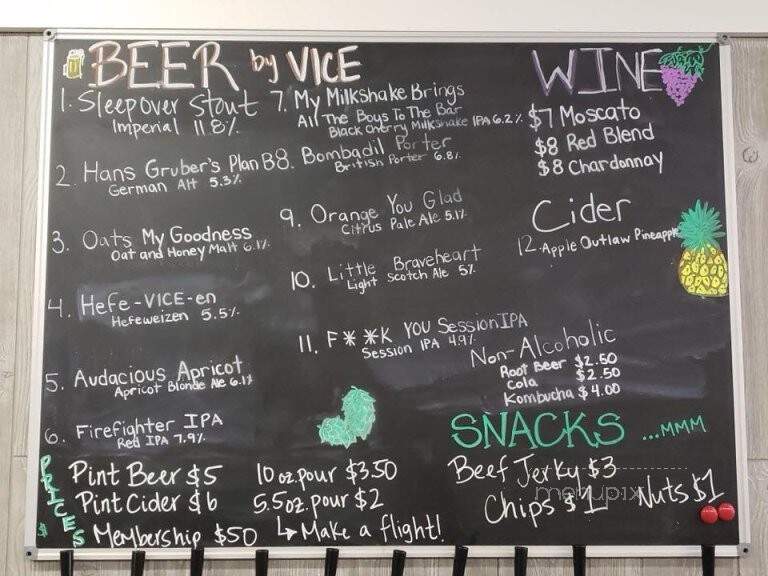 BEER by VICE
1. Sleepover Stout
Imperial 11.8%
2. Hans Gruber's Plan B
German Alt 5.3%
3. Oats My Goodness
Oat and Honey Malt 6.1%
4. Hefe-VICE-en
Hefeweizen 5.5%
5. Audacious Apricot
Apricot Blonde Ale 6.1%
6. Firefighter IPA
Red IPA 7.9%
7. My Milkshake Brings
All The Boys To The Bar
Black Cherry Milkshake IPA 6.2%
8. Bombadil Porter
British Porter 6.8%
9. Orange You Glad
Citrus Pale Ale 5.1%
10. Little Braveheart
Light Scotch Ale 5%
11. F**K YOU Session IPA
Session IPA 4.9%
WINE
$7 Moscato
$8 Red Blend
$8 Chardonnay
Cider
12. Apple Outlaw Pineapple
Non-Alcoholic
Root Beer $2.50
Cola $2.50
Kombucha $4.00
SNACKS ...MMM
Beef Jerky $3
Chips $1 Nuts $1
menupix
PRICES
$
Pint Beer $5 10 oz. pour $3.50
Pint Cider $6 5.5oz. pour $2
Membership $50 ↳ Make a flight!